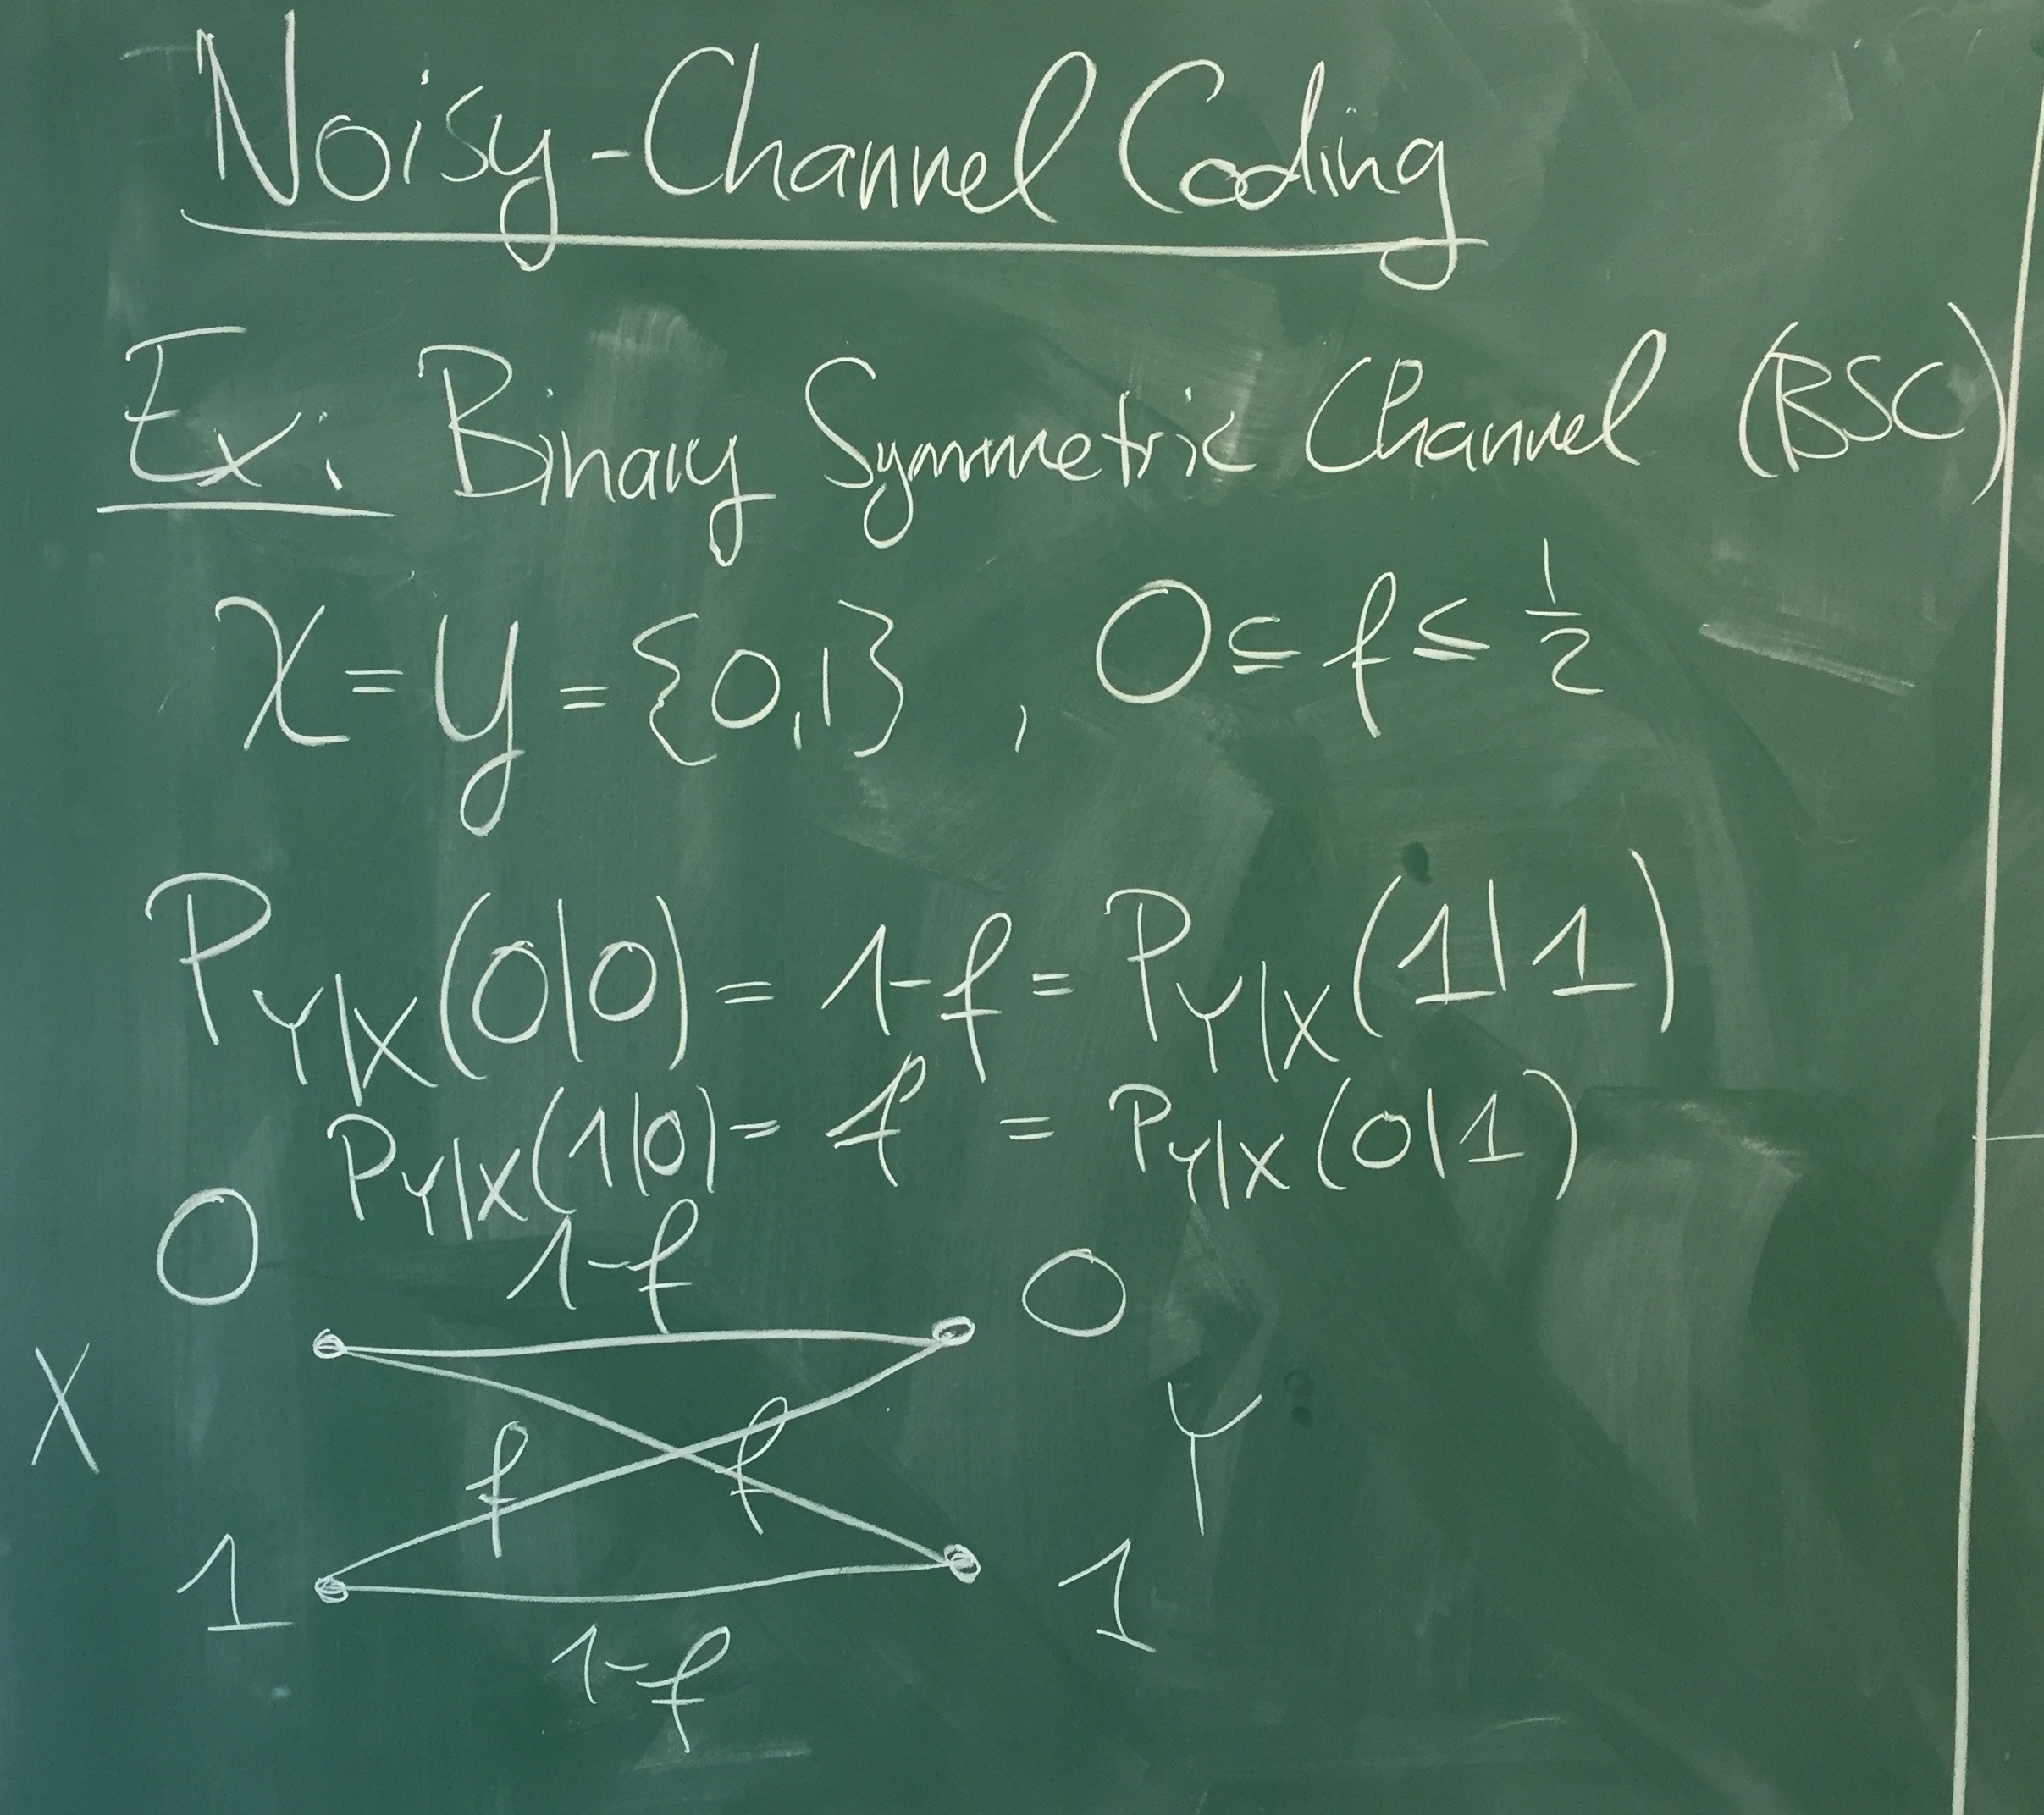 Noisy-Channel Coding
Ex: Binary Symmetric Channel (BSC)
𝒳 = 𝒴 = {0,1} , 0 ≤ f ≤ 1/2
P_{Y|X}(0|0) = 1-f = P_{Y|X}(1|1)
P_{Y|X}(1|0) = f = P_{Y|X}(0|1)
0 1-f 0
X f f Y
1 1-f 1